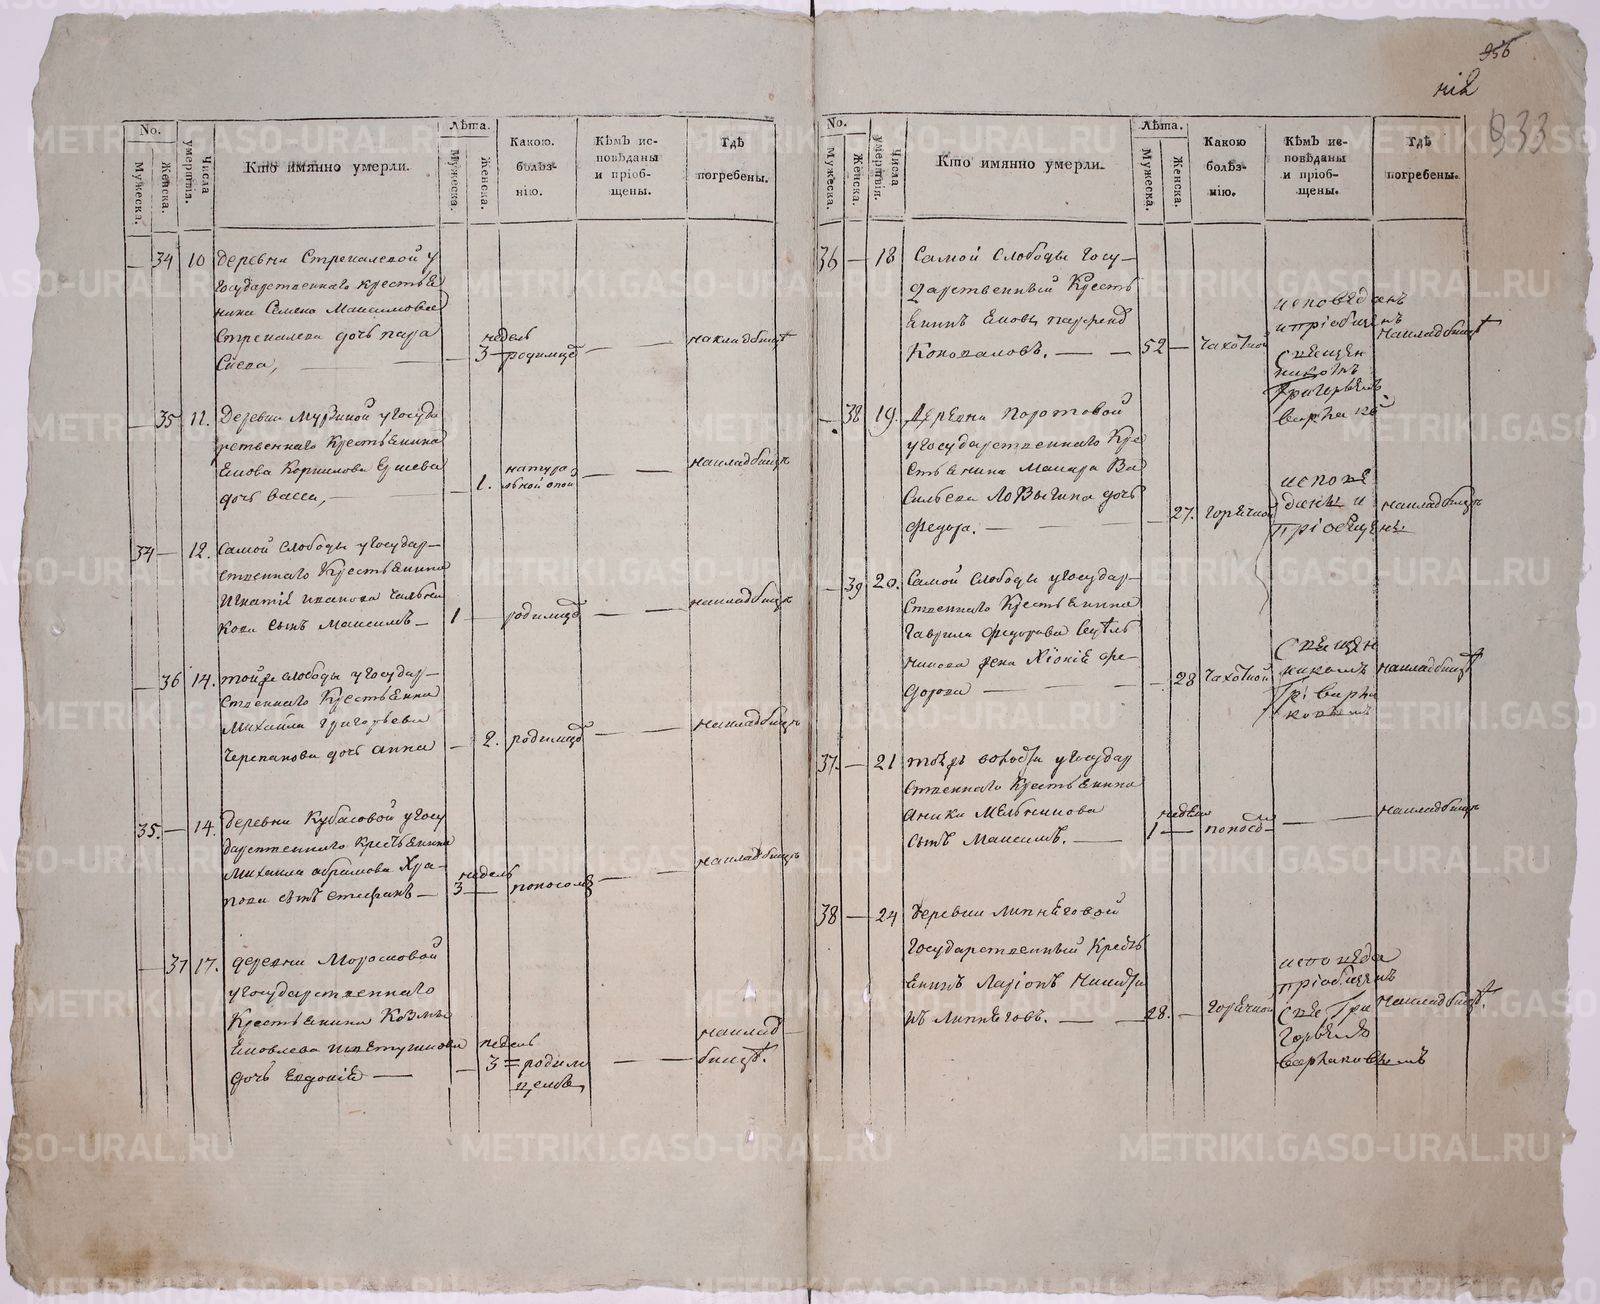 956
933
No.
Мужеска.
Женска.
Числа умертвія.
Кто имянно умерли.
Лѣта.
Мужеска.
Женска.
Какою.
болѣз-
нію.
Кѣмъ ис-
повѣданы
и пріоб-
щены.
Гдѣ
погребены.
34 10 деревни Стрекалевой у
государственнаго крестья
нина Семена Максимова
Стрекалева дочь пара
скева,
недель
3 родимцо
накладбищѣ
35 11. Деревни Мурзиной у госуда
рственнаго Крестьянина
дочь васса,
1. натура
льной оспой
накладбищѣ
34 12. самой слободы у государ-
ственнаго Крестьянина
Игнатія иванова
кова сынъ Максимъ
1 родимцо
накладбищѣ
36 14. тойже слободы у государ-
ственнаго Крестьянина
Михайла григорьева
Черепанова дочь анна
2. родимцо
накладбищѣ
35. 14. деревни Кубасовой у госу
дарственнаго Крестьянина
Михаила абрамова Хра-
пова сынъ стефанъ
недель
3 поносомъ
накладбищѣ
37 17. деревни Морошковой
у государственнаго
Крестьянина Козмы
Яковлева
дочь Евдокія
недель
3 родим
цомъ
наклад
бищѣ.
No.
Мужеска.
Женска.
Числа умертвія.
Кто имянно умерли.
Лѣта.
Мужеска.
Женска.
Какою
болѣз-
нію.
Кѣмъ ис-
повѣданы
и пріоб-
щены.
Гдѣ
погребены.
36 18 Самой Слободы Госу-
дарственный Кресть
янинъ
Коноваловъ.
52 чахоткой
исповеданъ
и пріобщенъ
священ
никомъ
Григорьемъ
накладбищѣ
38 19. Деревни Поротовой
у государственнаго Кре
стьянина Макара Ва
сильева Ловыгина дочь
федора.
27. горячкой
испове
даны и
пріобщены.
накладбищѣ
39 20. Самой Слободы у государ-
ственнаго Крестьянина
Гаврила федорова
никова жена Хіонія фе-
дорова
28 чахоткой
священ
никомъ
накладбищѣ
37. 21 тойже слободы у государ
ственнаго Крестьянина
аники Мельникова
сынъ Максимъ.
недели
1 поносо
накладбищѣ
38 24 деревни Липняговой
государственный Кресть
янинъ Ларіонъ Никити
нъ Липняговъ.
28. горячкой
исповеда
пріобщенъ
Гри
горьемъ
накладбищѣ.
METRIKI.GASO-URAL.RU